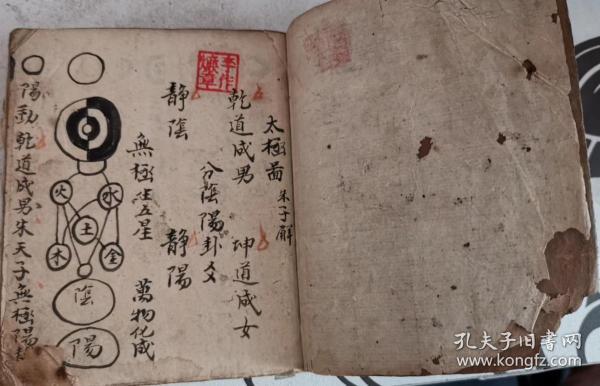 太極畕 朱子解
乾道成男 坤道成女
分陰陽卦爻
静陰 静陽
無極生五星 萬物化成
火 水
土
木 金
陰
陽
陽動乾道成男朱天子無極陽
孔夫子旧书网
www.kongfz.com